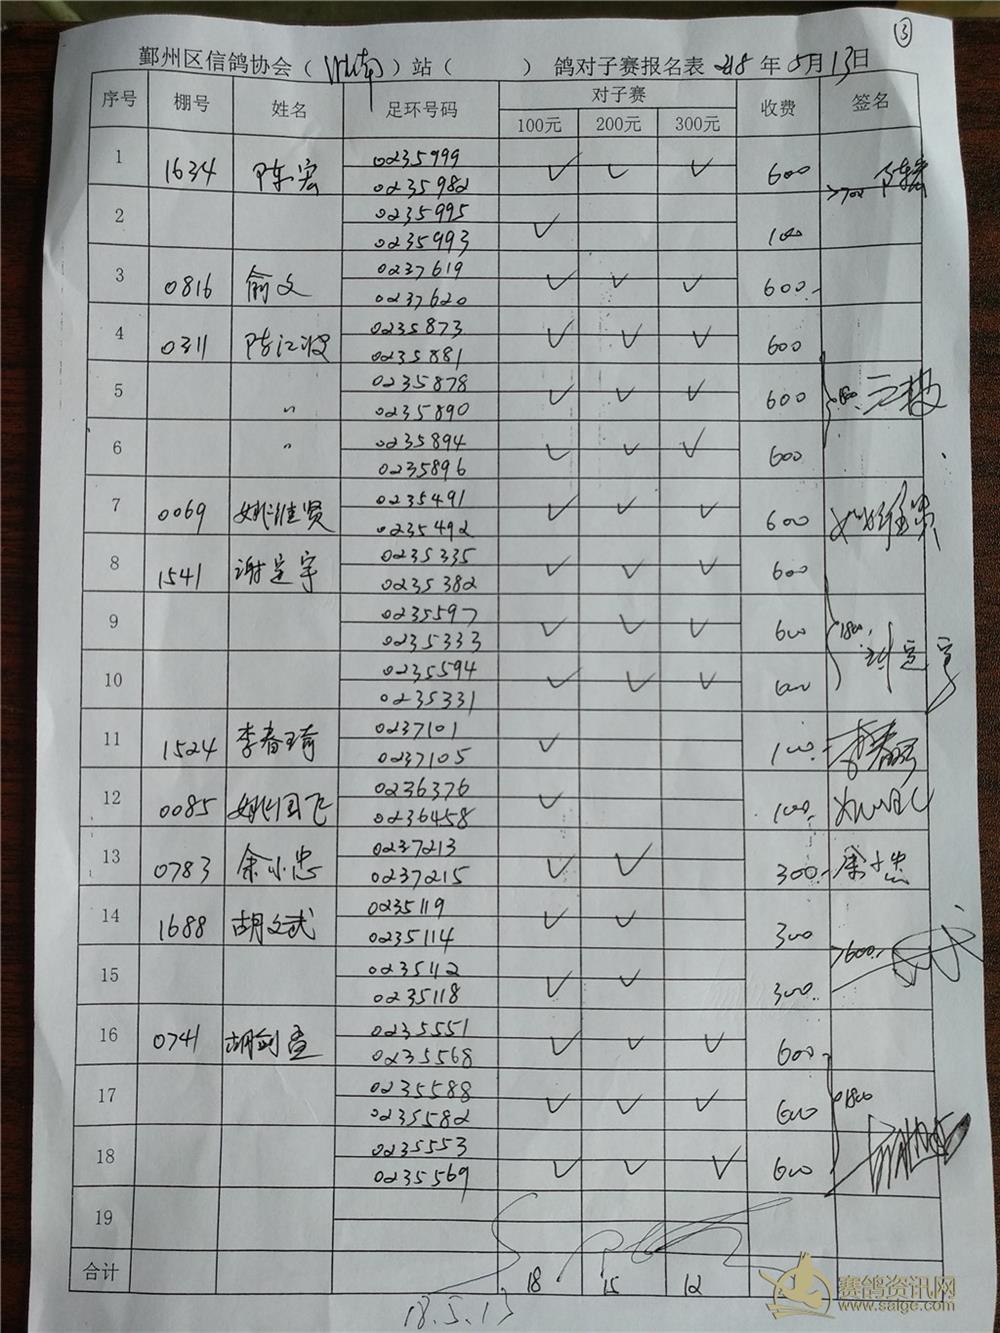 ③
鄞州区信鸽协会（ ）站（ ） 鸽对子赛报名表 218 年 5月 13日
序号 棚号 姓名 足环号码 对子赛 收费 签名
100元 200元 300元
1 1634 陈宏 0235999 ✓ ✓ ✓ 600
0235982
>700 陈宏
2 0235995 ✓ 100
0235993
3 0816 俞文 0237619 ✓ ✓ ✓ 600.-
0237620
4 0311 陈江波 0235873 ✓ ✓ ✓ 600
0235881
5 〃 0235878 ✓ ✓ ✓ 600
0235890
1800.
6 〃 0235894 ✓ ✓ ✓ 600
0235896
7 0069 姚维贤 0235491 ✓ ✓ ✓ 600 姚维贤
0235492
8 1541 谢定宇 0235335 ✓ ✓ ✓ 600
0235382
9 0235597 ✓ ✓ ✓ 600
0235333
1800. 谢定宇
10 0235594 ✓ ✓ ✓ 600
0235331
11 1524 李春琦 0237101 ✓ 100.- 李春琦
0237105
12 0085 姚国飞 0236376 ✓ 100.
0236458
13 0783 余小忠 0237213 ✓ ✓ 300.- 余小忠
0237215
14 1688 胡文武 0235119 ✓ ✓ 300
0235114
>600.-
15 0235112 ✓ ✓ 300.
0235118
16 0741 胡剑孟 0235551 ✓ ✓ ✓ 600.
0235568
17 0235588 ✓ ✓ ✓ 600
0235582
1800
18 0235553 ✓ ✓ ✓ 600
0235569
19
合计 18 15 12
18.5.13
赛鸽资讯网
www.saige.com